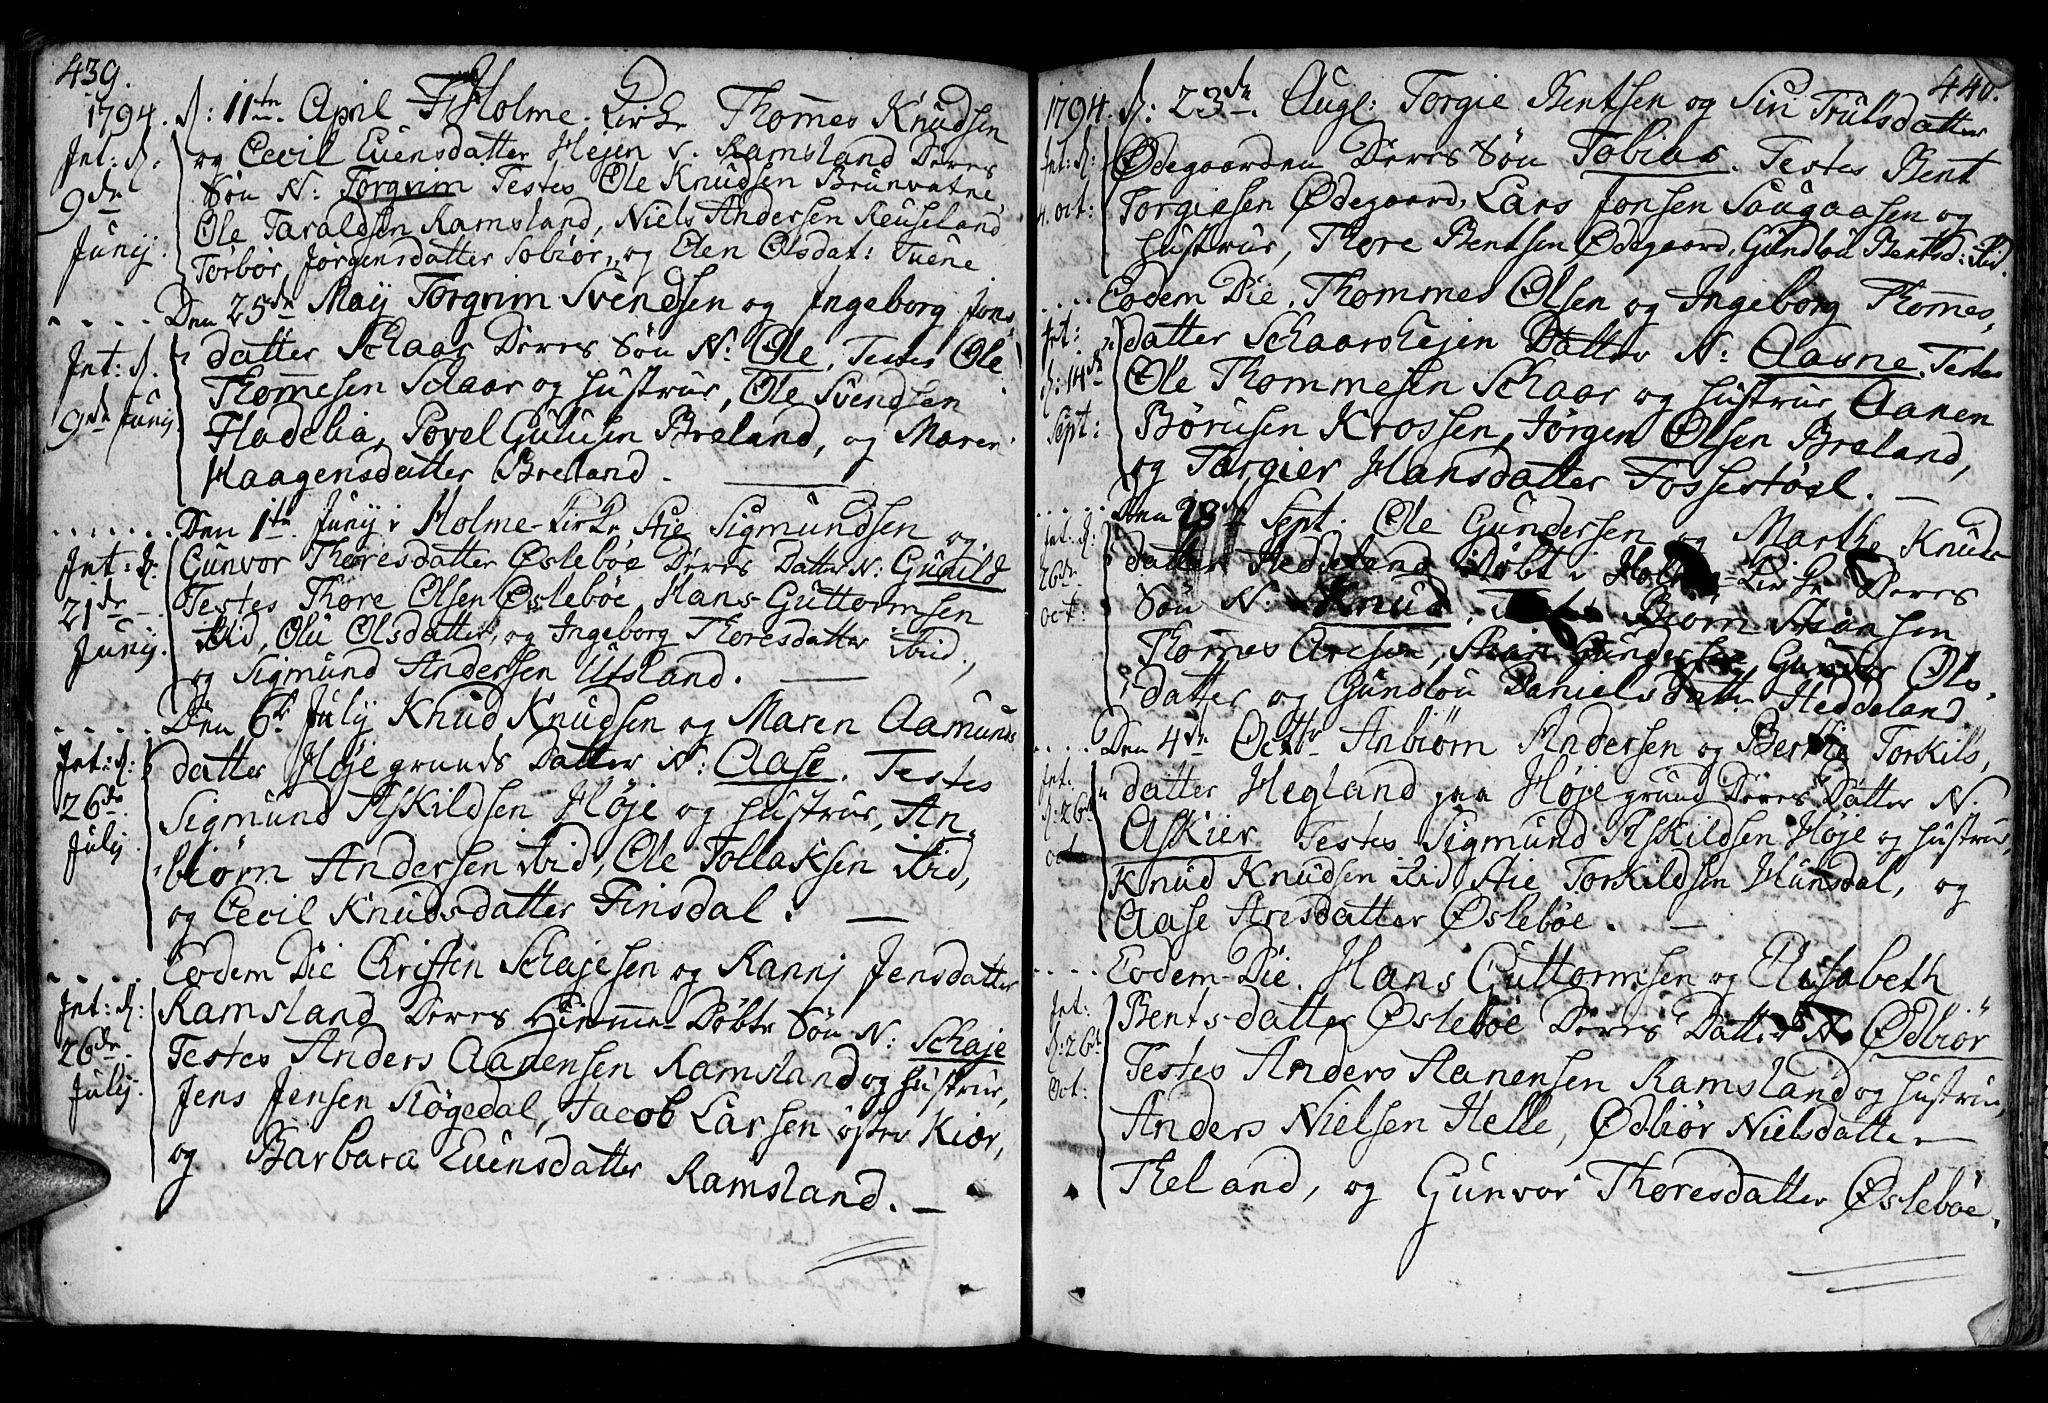 439.
1794. d: 11te. April I Holme-Kirke Thomes Knudsen
og Cecil Evensdatter Hejen v. Ramsland Deres
Søn N: Torgrim Testes Ole Knudsen Brunvatne,
Ole Taraldsen Ramsland, Niels Andersen Reuseland
Torbor Jørgensdatter Sobiør, og Elen Olsdat: Tuene.
Int: d.
9de
Junij.
Den 25de Maij Torgrim Svendsen og Ingeborg Jons,
datter Schaar Deres Søn N: Ole, Testes Ole
Thomesen Schaar og Hustrue, Ole Svendsen
Fladebia, Povel Gulusen Breland, og Maren
Haagensdatter Breland.
Int: d.
9de Junij
Den 1te Junij i Holme-Kirke Aie Sigmundsen og
Gunvor Thoresdatter Øslebøe Deres Datter N: Gunild
Testes Thore Olsen Øslebøe, Hans Guttormsen
Ibid, Olu Olsdatter, og Ingeborg Thoresdatter ibid.,
og Sigmund Andersen Utsland.
Int: d.
21de
Junij.
Den 6te Julij Knud Knudsen og Maren Aamunds
datter Høje grunds Datter N: Aase. Testes
Sigmund Askildsen Høje og Hustrue, An,
biørn Andersen ibid, Ole Tollaksen ibid,
og Cecil Knudsdatter Finsdal.
Int: d:
26de
Julij
Eodem Die Christen Schajesen og Rannj Jensdatter
Ramsland Deres Hiemme-Døbte Søn N: Schaje
Testes Anders Aanensen Ramsland og Hustrue,
Jens Jensen Røgedal, Jacob Larsen øster Kiær,
og Barbara Evensdatter Ramsland.
Int: d:
26de
Julij.
440.
1794. d: 23de. Augl: Torgie Bentsen og Siri Trulsdatter
Ødegaarden Deres Søn Tobias. Testes Bent
Torgiesen Ødegaard, Lars Jonsen Saugaasen og
Hustrue, Thore Bentsen Ødegaard, Gundlou Bentsd: ibid.
Int: d:
4. oct:
Eodem Die. Thommes Olsen og Ingeborg Thomes,
datter Schaarshejen Datter N: Aasne. Testes
Ole Thommesen Schaar og Hustrue, Aanen
Børusen Krossen, Jørgen Olsen Breland,
og Torgier Hansdatter Fossestøel.
Int:
d: 14de
Sept:
Den 28de Sept. Ole Gundersen og Marthe Knuds
datter Heddeland Døbt i Holme-Kirke Deres
Søn N: Knud. Testes Biørn
Thomes Aresen, Gundersen, Gunvor Ols,
datter og Gundlou Danielsdatter Heddeland
Int: d:
26de
oct:
Den 4de Octbr Anbiørn Andersen og Berthe Torkils,
datter Hegland paa Høje grund Deres Datter N.
Askier Testes Sigmund Askildsen Høje og Hustrue,
Knud Knudsen ibid, Aie Torkildsen Hunsdal, og
Aase Aresdatter Øslebøe.
Int:
d: 26de
oct
Eodem-Die. Hans Guttormsen og Elisabeth
Bentsdatter Øslebøe Deres Datter N. Ødbiør
Testes Anders Aanensen Ramsland og Hustrue,
Anders Nielsen Helle, Ødbiør Nielsdatter
Theland, og Gunvor Thoresdatter Øslebøe.
Int:
d: 26de
Oct: